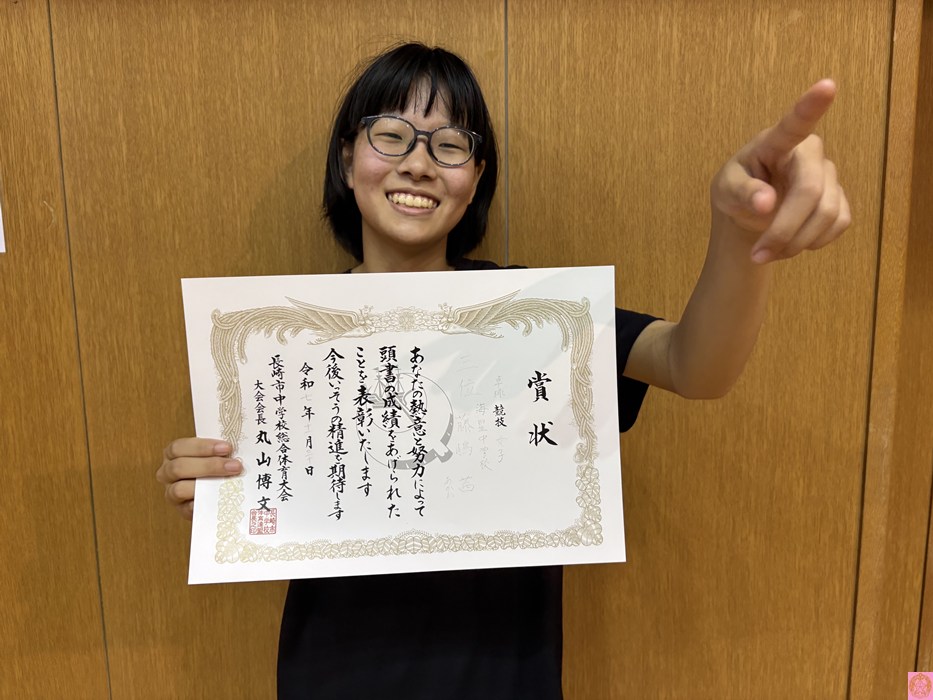 賞状
卓球競技 女子
三位
あなたの熱意と努力によって
頭書の成績をあげられた
ことを表彰いたします
今後いっそうの精進を期待します
令和七年
月
日
長崎市中学校総合体育大会
大会会長 丸山博文